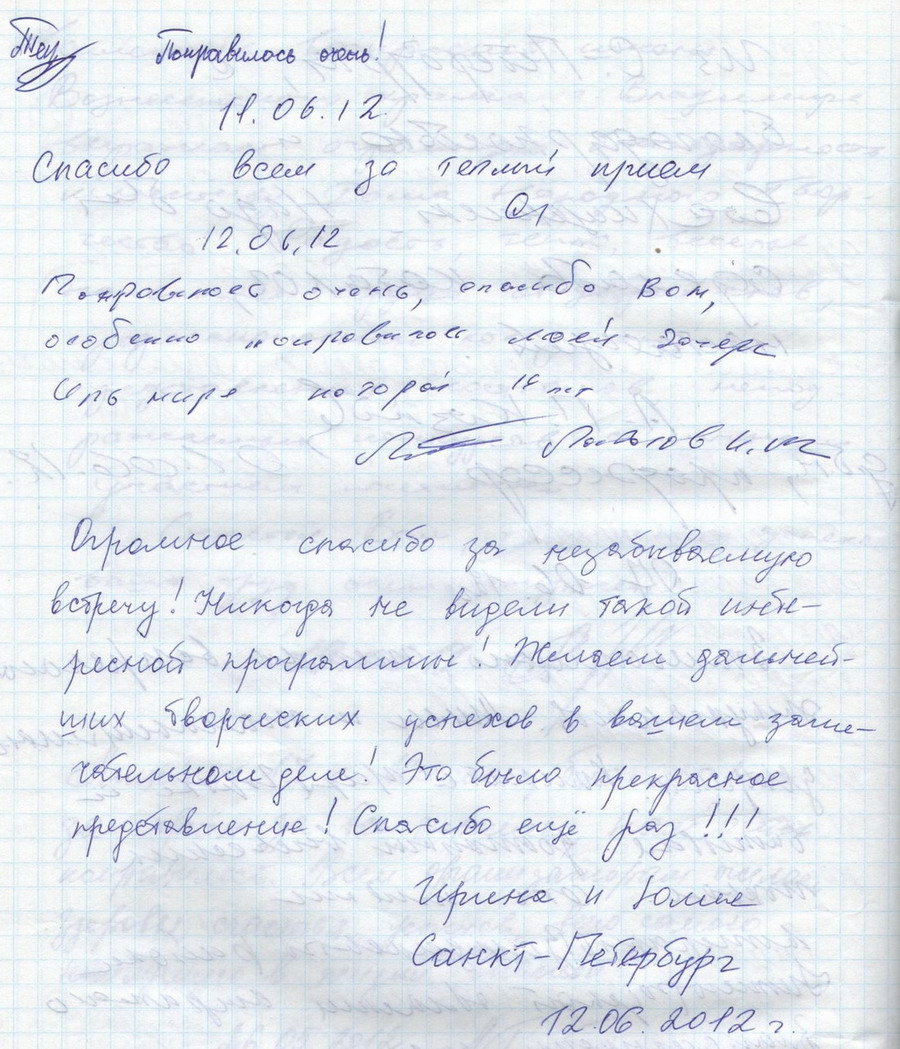 Понравилось очень!
11.06.12
Спасибо всем за теплый прием
12.06.12
Понравилось очень, спасибо Вам,
особенно понравилось моей дочери
которой лет
Огромное спасибо за незабываемую
встречу! Никогда не видели такой инте-
ресной программы! Желаем дальней-
ших творческих успехов в вашем заме-
чательном деле! Это было прекрасное
представление! Спасибо ещё раз!!!
Ирина и Юлия
Санкт-Петербург
12.06.2012 г.